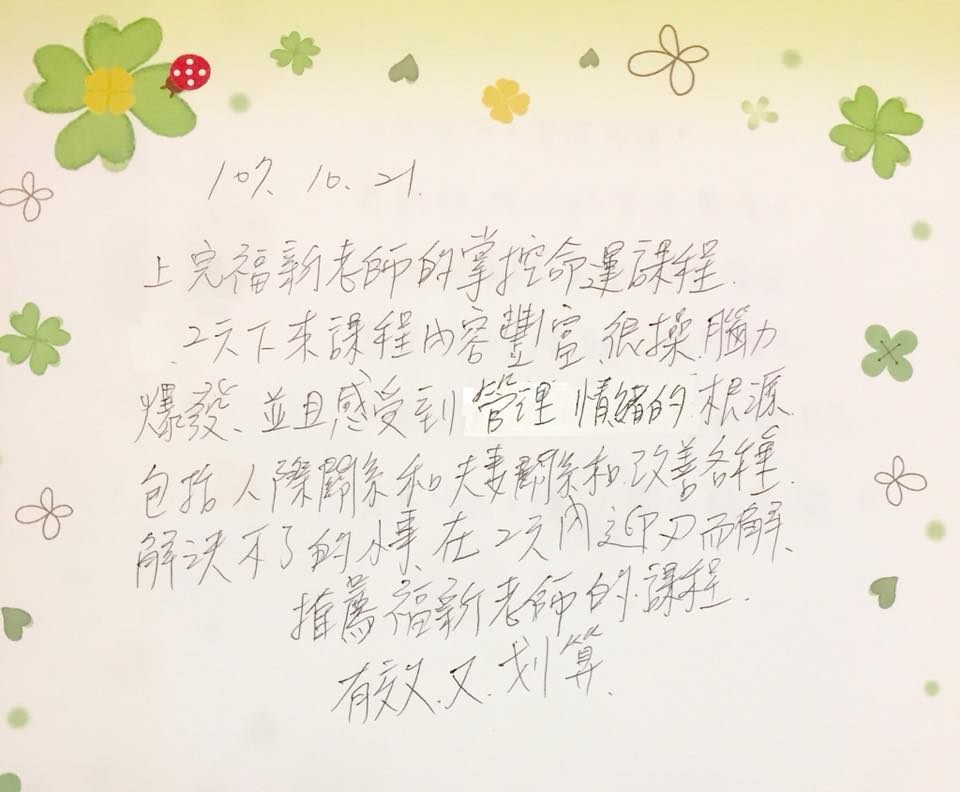 107. 10. 21.
上完福新老師的掌控命運課程.
、2天下來課程內容豐富、很操、腦力
爆發、並且感受到管理情緒的根源、
包括人際關係和夫妻關係和改善各種.
解決不了的事、在2天內迎刃而解、
推薦福新老師的課程.
有效.又.划算.